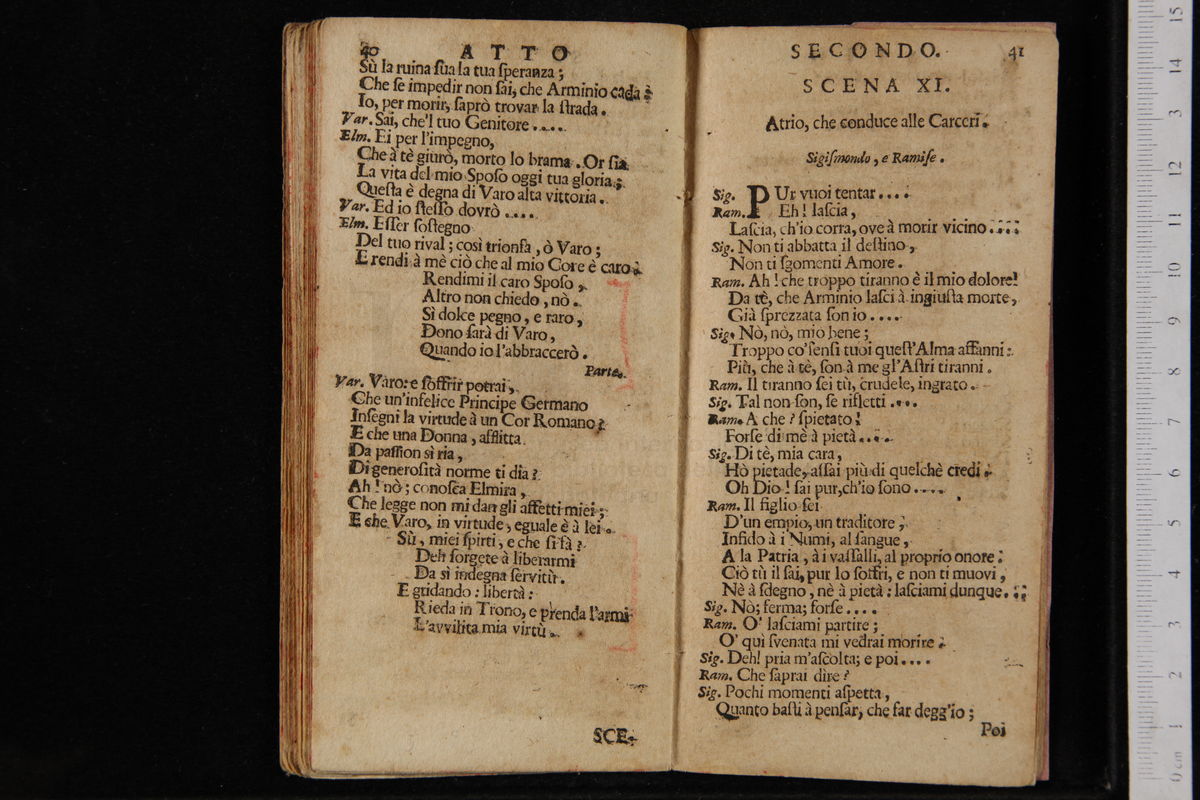 40 ATTO
Sù la ruina ſua la tua ſperanza;
Che ſe impedir non ſai, che Arminio cada?
Io, per morir, ſaprò trovar la ſtrada.
Var. Sai, che'l tuo Genitore....
Elm. Ei per l'impegno,
Che à tè giurò, morto lo brama. Or ſia
La vita del mio Spoſo oggi tua gloria;
Queſta è degna di Varo alta vittoria.
Var. Ed io ſteſſo dovrò....
Elm. Eſſer ſoſtegno
Del tuo rival; così trionfa, ò Varo;
E rendi à mè ciò che al mio Core è caro.
Rendimi il caro Spoſo,
Altro non chiedo, nò.
Sì dolce pegno, e raro,
Dono ſarà di Varo,
Quando io l'abbraccerò.
Parte.
Var. Varo: e ſoffrir potrai,
Che un'infelice Principe Germano
Inſegni la virtude à un Cor Romano?
E che una Donna, afflitta
Da paſſion sì ria,
Di generoſità norme ti dia?
Ah! nò; conoſca Elmira,
Che legge non mi dan gli affetti miei;
E che Varo, in virtude, eguale è à lei.
Sù, miei ſpirti, e che ſi fà?
Deh ſorgete à liberarmi
Da sì indegna ſervitù.
E gridando: libertà:
Rieda in Trono, e prenda l'armi
L'avvilita mia virtù.
SCE-
SECONDO. 41
SCENA XI.
Atrio, che conduce alle Carceri.
Sigiſmondo, e Ramiſe.
Sig. PUr vuoi tentar....
Ram. Eh! laſcia,
Laſcia, ch'io corra, ove à morir vicino....
Sig. Non ti abbatta il deſtino,
Non ti ſgomenti Amore.
Ram. Ah! che troppo tiranno è il mio dolore!
Da tè, che Arminio laſci à ingiuſta morte,
Già ſprezzata ſon io....
Sig. Nò, nò, mio bene;
Troppo co'ſenſi tuoi queſt'Alma affanni:
Più, che à tè, ſon à me gl'Aſtri tiranni.
Ram. Il tiranno ſei tù, crudele, ingrato.
Sig. Tal non ſon, ſe rifletti....
Ram. A che? ſpietato!
Forſe di mè à pietà....
Sig. Di tè, mia cara,
Hò pietade, aſſai più di quelchè credi.
Oh Dio! ſai pur, ch'io ſono....
Ram. Il figlio ſei
D'un empio, un traditore,
Infido à i Numi, al ſangue,
A la Patria, à i vaſſalli, al proprio onore:
Ciò tù il ſai, pur lo ſoffri, e non ti muovi,
Nè à ſdegno, nè à pietà: laſciami dunque....
Sig. Nò; ferma; forſe....
Ram. O' laſciami partire;
O' quì ſvenata mi vedrai morire.
Sig. Deh! pria m'aſcolta; e poi....
Ram. Che ſaprai dire?
Sig. Pochi momenti aſpetta,
Quanto baſti à penſar, che far degg'io;
Poi